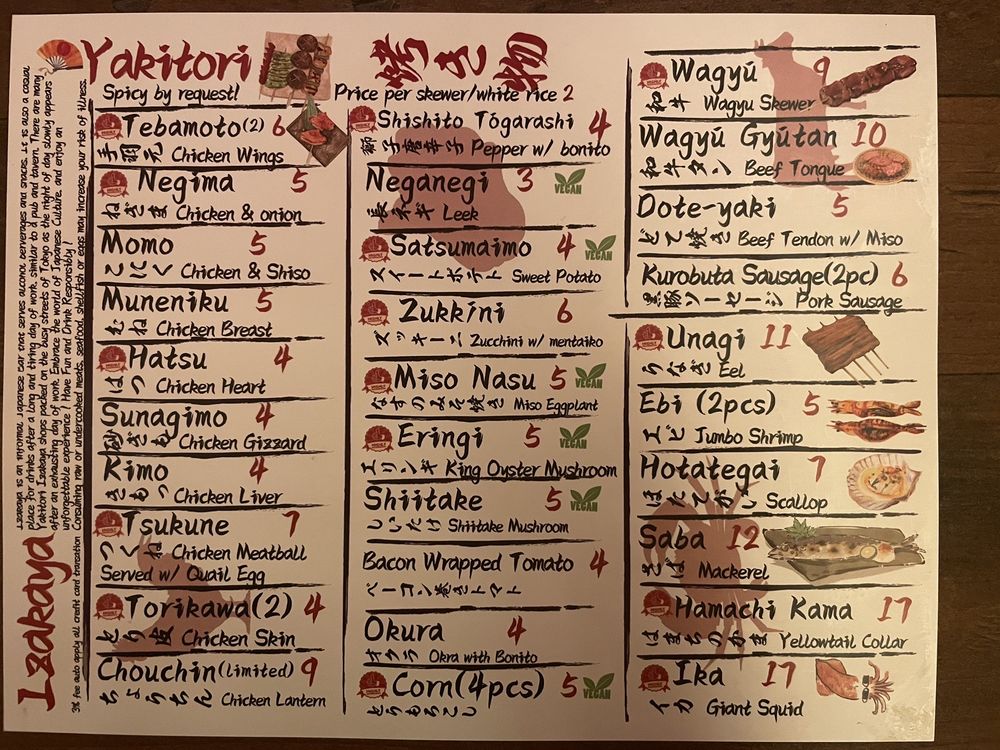 Izakaya
Izakaya is an informal Japanese bar that serves alcohol beverages and snacks. It is also a casual
place for drinks after a long and tiring day of work, similar to a pub and tavern. There are many
Yakitori Izakaya shops packed on the busy streets of Tokyo as the night of day slowly appears
after an exhausting day of work. Embrace the world of Japanese Culture, and enjoy an
unforgettable experience ! Have Fun and Drink Responsibly !
3% fee auto apply all credit card transation Consuming raw or undercooked meats, seafood, shellfish or eggs may increase your risk of illness.
Yakitori 焼き物
Spicy by request! Price per skewer/white rice 2
Tebamoto(2) 6
手羽元 Chicken Wings
Negima 5
ねぎま Chicken & onion
Momo 5
こにく Chicken & Shiso
Muneniku 5
むね Chicken Breast
Hatsu 4
はつ Chicken Heart
Sunagimo 4
砂きも Chicken Gizzard
Kimo 4
きもつ Chicken Liver
Tsukune 7
つくね Chicken Meatball
Served w/ Quail Egg
Torikawa(2) 4
とり皮 Chicken Skin
Chouchin(Limited) 9
ちょうちん Chicken Lantern
Shishito Tógarashi 4
獅子唐辛子 Pepper w/ bonito
Neganegi 3 VEGAN
長ネギ Leek
Satsumaimo 4 VEGAN
スイートポテト Sweet Potato
Zukkíni 6
ズッキーニ Zucchini w/ mentaiko
Miso Nasu 5 VEGAN
なすのみそ焼き Miso Eggplant
Eringi 5 VEGAN
エリンギ King Oyster Mushroom
Shiitake 5 VEGAN
しいたけ Shiitake Mushroom
Bacon Wrapped Tomato 4
ベーコン巻きトマト
Okura 4
オクラ Okra with Bonito
Corn(4pcs) 5 VEGAN
とうもろこし
Wagyú 9
和牛 Wagyu Skewer
Wagyú Gyútan 10
和牛タン Beef Tongue
Dote-yaki 5
どて焼き Beef Tendon w/ Miso
Kurobuta Sausage(2pc) 6
黒豚ソーセージ Pork Sausage
Unagi 11
うなぎ Eel
Ebi (2pcs) 5
エビ Jumbo Shrimp
Hotategai 7
ほたてがい Scallop
Saba 12
さば Mackerel
Hamachi Kama 17
はまちのかま Yellowtail Collar
Ika 17
イカ Giant Squid